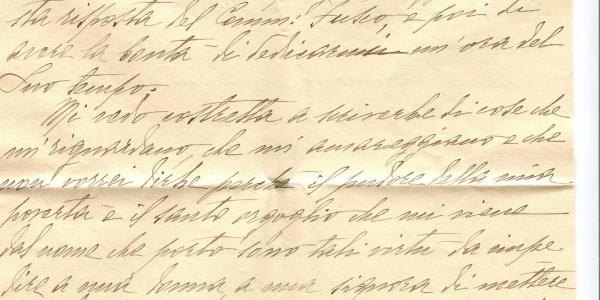 sta risposta del Comm: Fusco, e poi di
avere la bontà di dedicarmi un'ora del
Suo tempo.
Mi vedo costretta a scriverle di cose che
m'riguardano, che mi amareggiano e che
non vorrei dirle perchè il pudore della mia
povertà e il santo orgoglio che mi viene
dal nome che porto sono tali virtù da impe
dire a una donna, a una signora di mettere